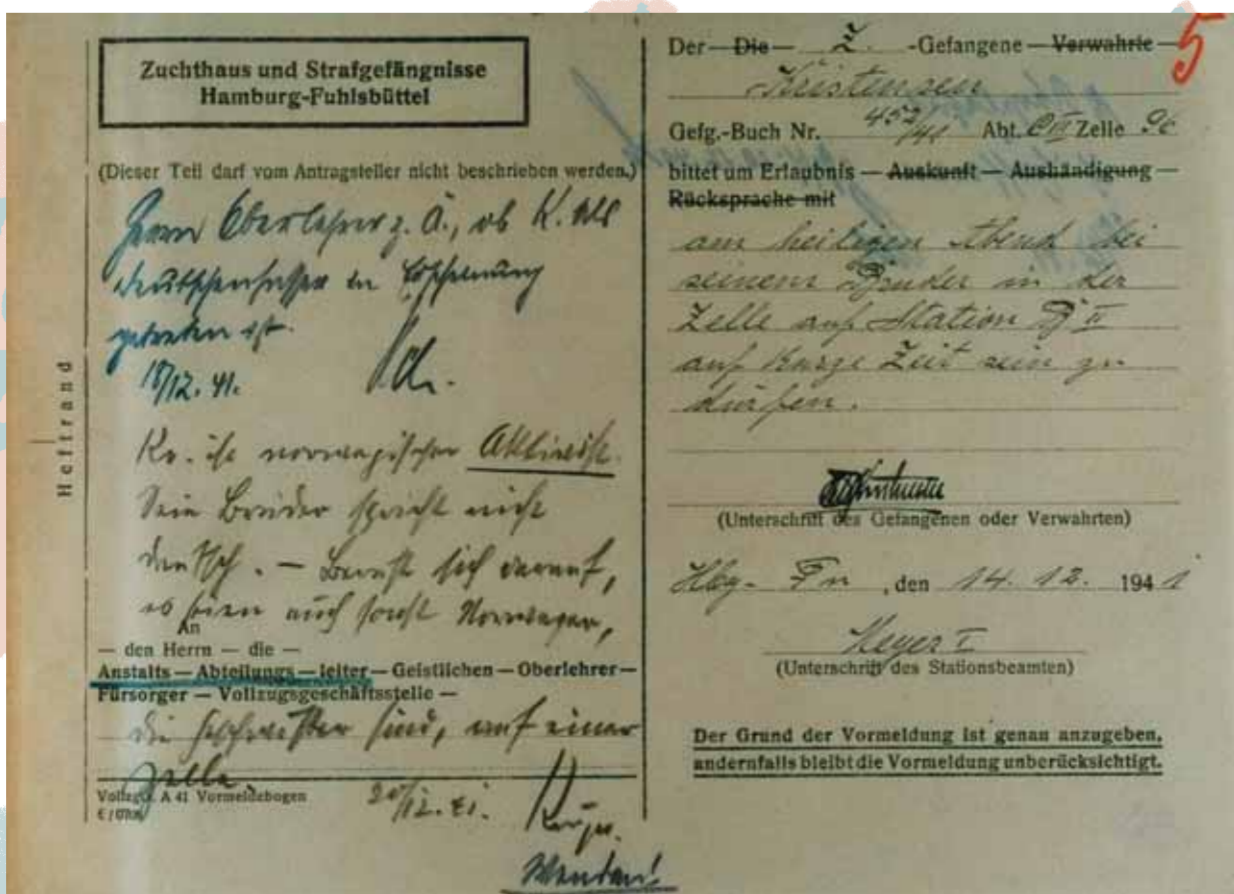 Zuchthaus und Strafgefängnisse
Hamburg-Fuhlsbüttel
(Dieser Teil darf vom Antragsteller nicht beschrieben werden.)
Herrn Oberlehrer z. Ä., ob K. als
Deutschenhasser in Erscheinung
getreten ist.
18/12. 41.
Kr. ist norwegischer Aktivist.
Sein Bruder spricht nicht
deutsch. — Beruft sich darauf,
es seien auch sonst Norweger,
An
— den Herrn — die —
Anstalts — Abteilungs — leiter — Geistlichen — Oberlehrer —
Fürsorger — Vollzugsgeschäftsstelle —
die Geschwister sind, auf einer
Zelle.
Vollzug. A 41 Vormeldebogen
20/12. 41.
Wenden!
Heftrand
Der — Die — Z. -Gefangene — Verwahrte —
5
Kristensen
Gefg.-Buch Nr. 452/41 Abt. C III Zelle
bittet um Erlaubnis — Auskunft — Aushändigung —
Rücksprache mit
am heiligen Abend bei
seinem Bruder in der
Zelle auf Station D II
auf kurze Zeit sein zu
dürfen.
(Unterschrift des Gefangenen oder Verwahrten)
Hbg- Fu, den 14. 12. 1941
Meyer I
(Unterschrift des Stationsbeamten)
Der Grund der Vormeldung ist genau anzugeben,
andernfalls bleibt die Vormeldung unberücksichtigt.